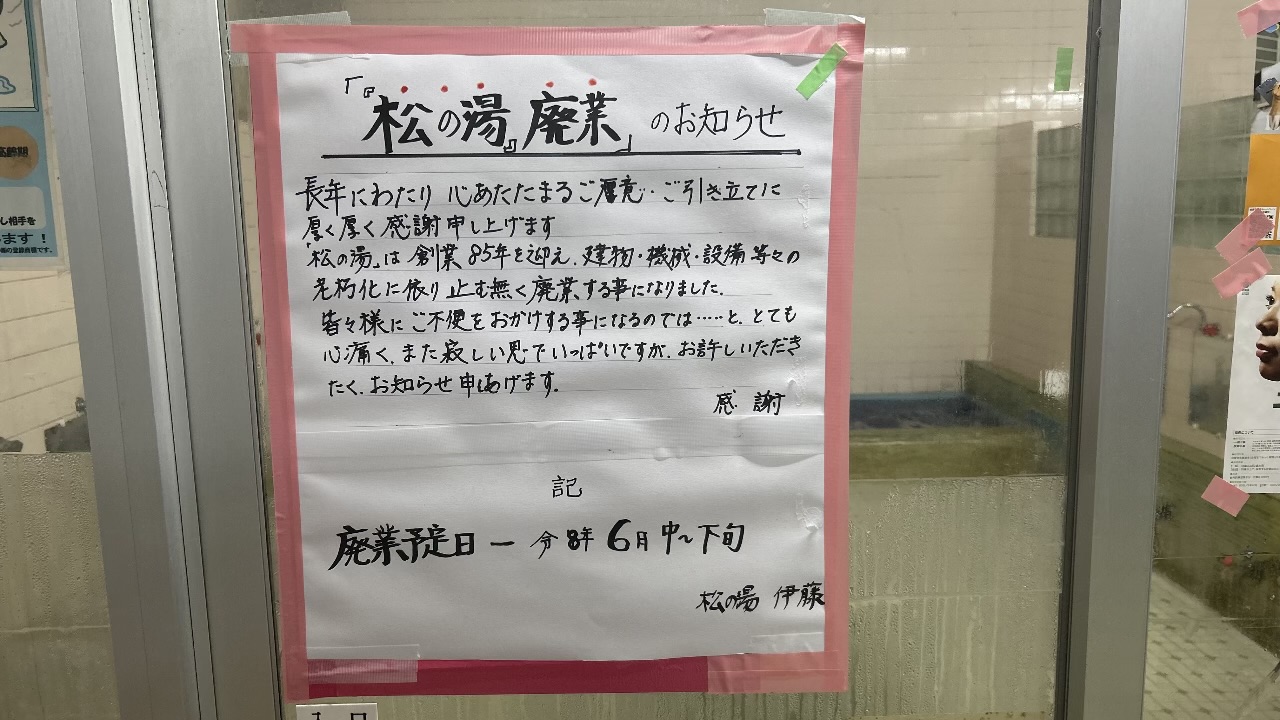 「『松の湯』廃業」のお知らせ
長年にわたり 心あたたまるご厚意・ご引き立てに
厚く厚く感謝申し上げます
「松の湯」は 創業85年を迎え、建物・機械・設備等々の
老朽化に依り止む無く廃業する事になりました。
皆々様にご不便をおかけする事になるのでは……と、とても
心痛く、また寂しい思でいっぱいですが、お許しいただき
たく、お知らせ申しあげます。
感謝
記
廃業予定日ー令8年6月中〜下旬
松の湯 伊藤
高齢期
し相手を
ます!
入口